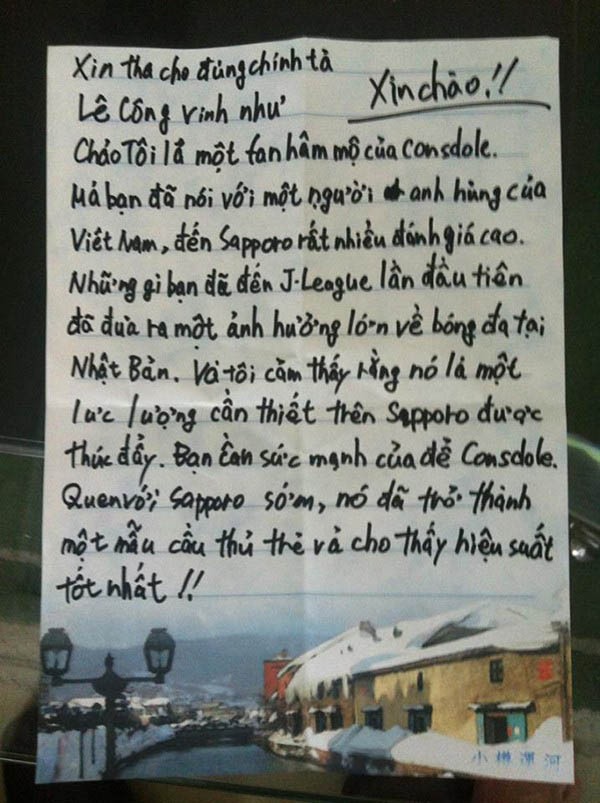 Xin tha cho đúng chính tả
Xin chào!!
Lê Công vinh như
Chảo Tôi lả một fan hâm mộ của Consdole.
Mả bạn đã nói với một người anh hùng của
Việt Nam, đến Sapporo rất nhiều đánh giá cao.
Những gì bạn đã đến J-League lần đầu tiên
đã đưa ra một ảnh hưởng lớn về bóng đạ tại
Nhật Bản. Và tôi cảm thấy rằng nó lả một
lưc lượng cần thiết trên Sapporo được
thúc đẩy. Bạn cần sức mạnh của để Consdole.
Quen với Sapporo sớm, nó đã trở thành
một mẫu cầu thủ thẻ vả cho thấy hiệu suất
tốt nhất!!
小樽運河